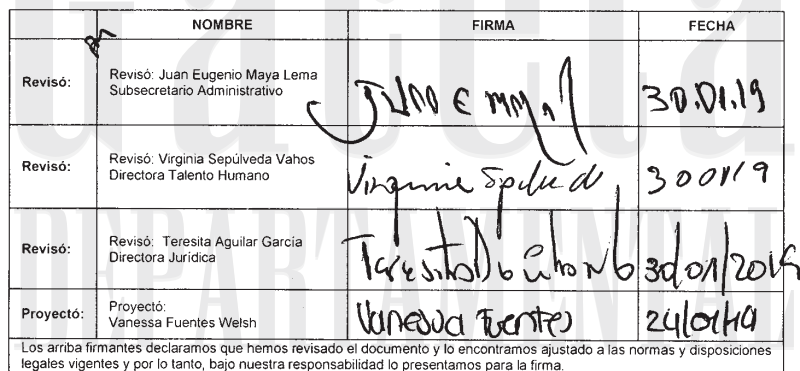 NOMBRE FIRMA FECHA
Revisó: Revisó: Juan Eugenio Maya Lema
Subsecretario Administrativo
30.01.19
Revisó: Revisó: Virginia Sepúlveda Vahos
Directora Talento Humano
Virginia 300119
Revisó: Revisó: Teresita Aguilar García
Directora Jurídica
Teresita 30/01/2019
Proyectó: Proyectó:
Vanessa Fuentes Welsh
Vanessa Fuentes 24/01/19
Los arriba firmantes declaramos que hemos revisado el documento y lo encontramos ajustado a las normas y disposiciones
legales vigentes y por lo tanto, bajo nuestra responsabilidad lo presentamos para la firma.